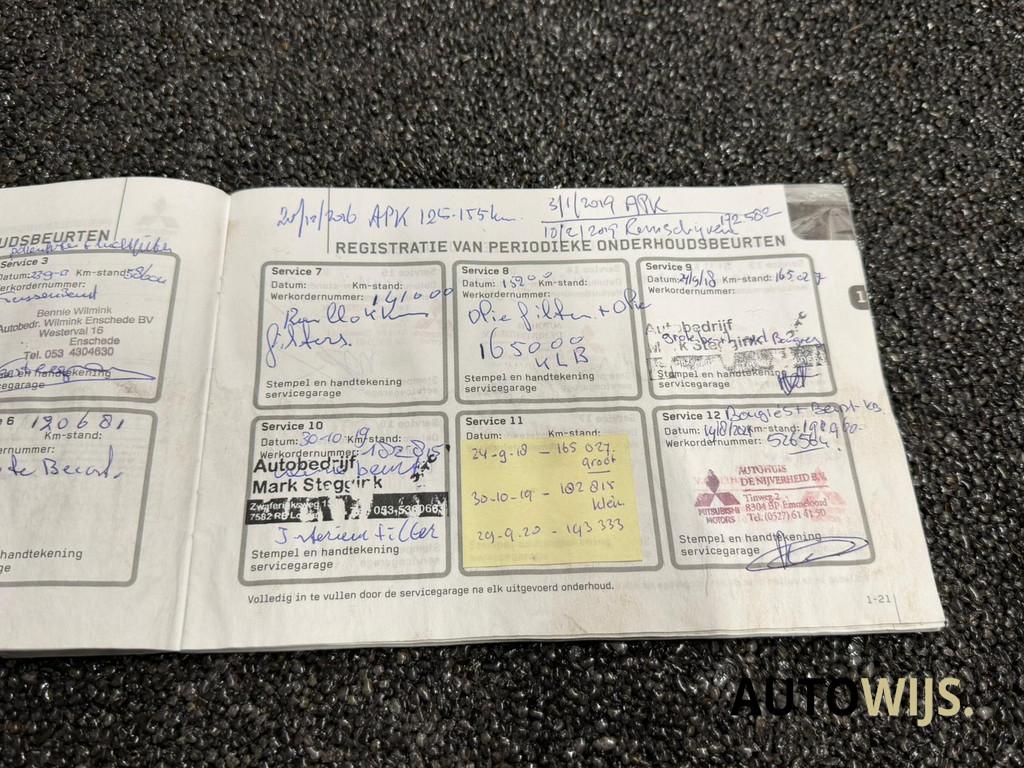 UDSBEURTEN
Service 3
Datum: Km-stand:
Werkordernummer:
Bennie Wilmink
Autobedr. Wilmink Enschede BV
Westerval 16
Enschede
Tel. 053 4304630
handtekening
servicegarage
6 120681
Km-stand:
dernummer:
te Beurt.
handtekening
ge
20/12/2016 APK 125-155km.
3/1/2019 APK
10/2/2019 Remschijven
192582
REGISTRATIE VAN PERIODIEKE ONDERHOUDSBEURTEN
Service 7
Datum: Km-stand:
Werkordernummer: 141000
filters.
Stempel en handtekening
servicegarage
Service 8
Datum: Km-stand:
Werkordernummer:
Oliefilter + Olie
165000
KLB
Stempel en handtekening
servicegarage
Service 9
Datum: 24/9/18 Km-stand: 165027
Werkordernummer:
Autobedrijf
Stempel en handtekening
servicegarage
Service 10
Datum: 30-10-19 Km-stand:
Werkordernummer: 182815
Autobedrijf
Mark Steggink
Zwaferinksweg
7582 RE
053-5380663
Interieur filter
Stempel en handtekening
servicegarage
Service 11
Datum: Km-stand:
24-9-18 - 165 027
groot
30-10-19 - 182 815
klein
29-9-20 - 193 333
Service 12 Bougies + Beurt
Datum: 14/8/2021 Km-stand:
Werkordernummer: 526584
AUTOHUIS
DE NIJVERHEID B.V.
MITSUBISHI
MOTORS
Tinweg 2
8304 BP Emmeloord
Tel. (0527) 61 41 50
Stempel en handtekening
servicegarage
Volledig in te vullen door de servicegarage na elk uitgevoerd onderhoud.
1-21
1
AUTOWIJS.